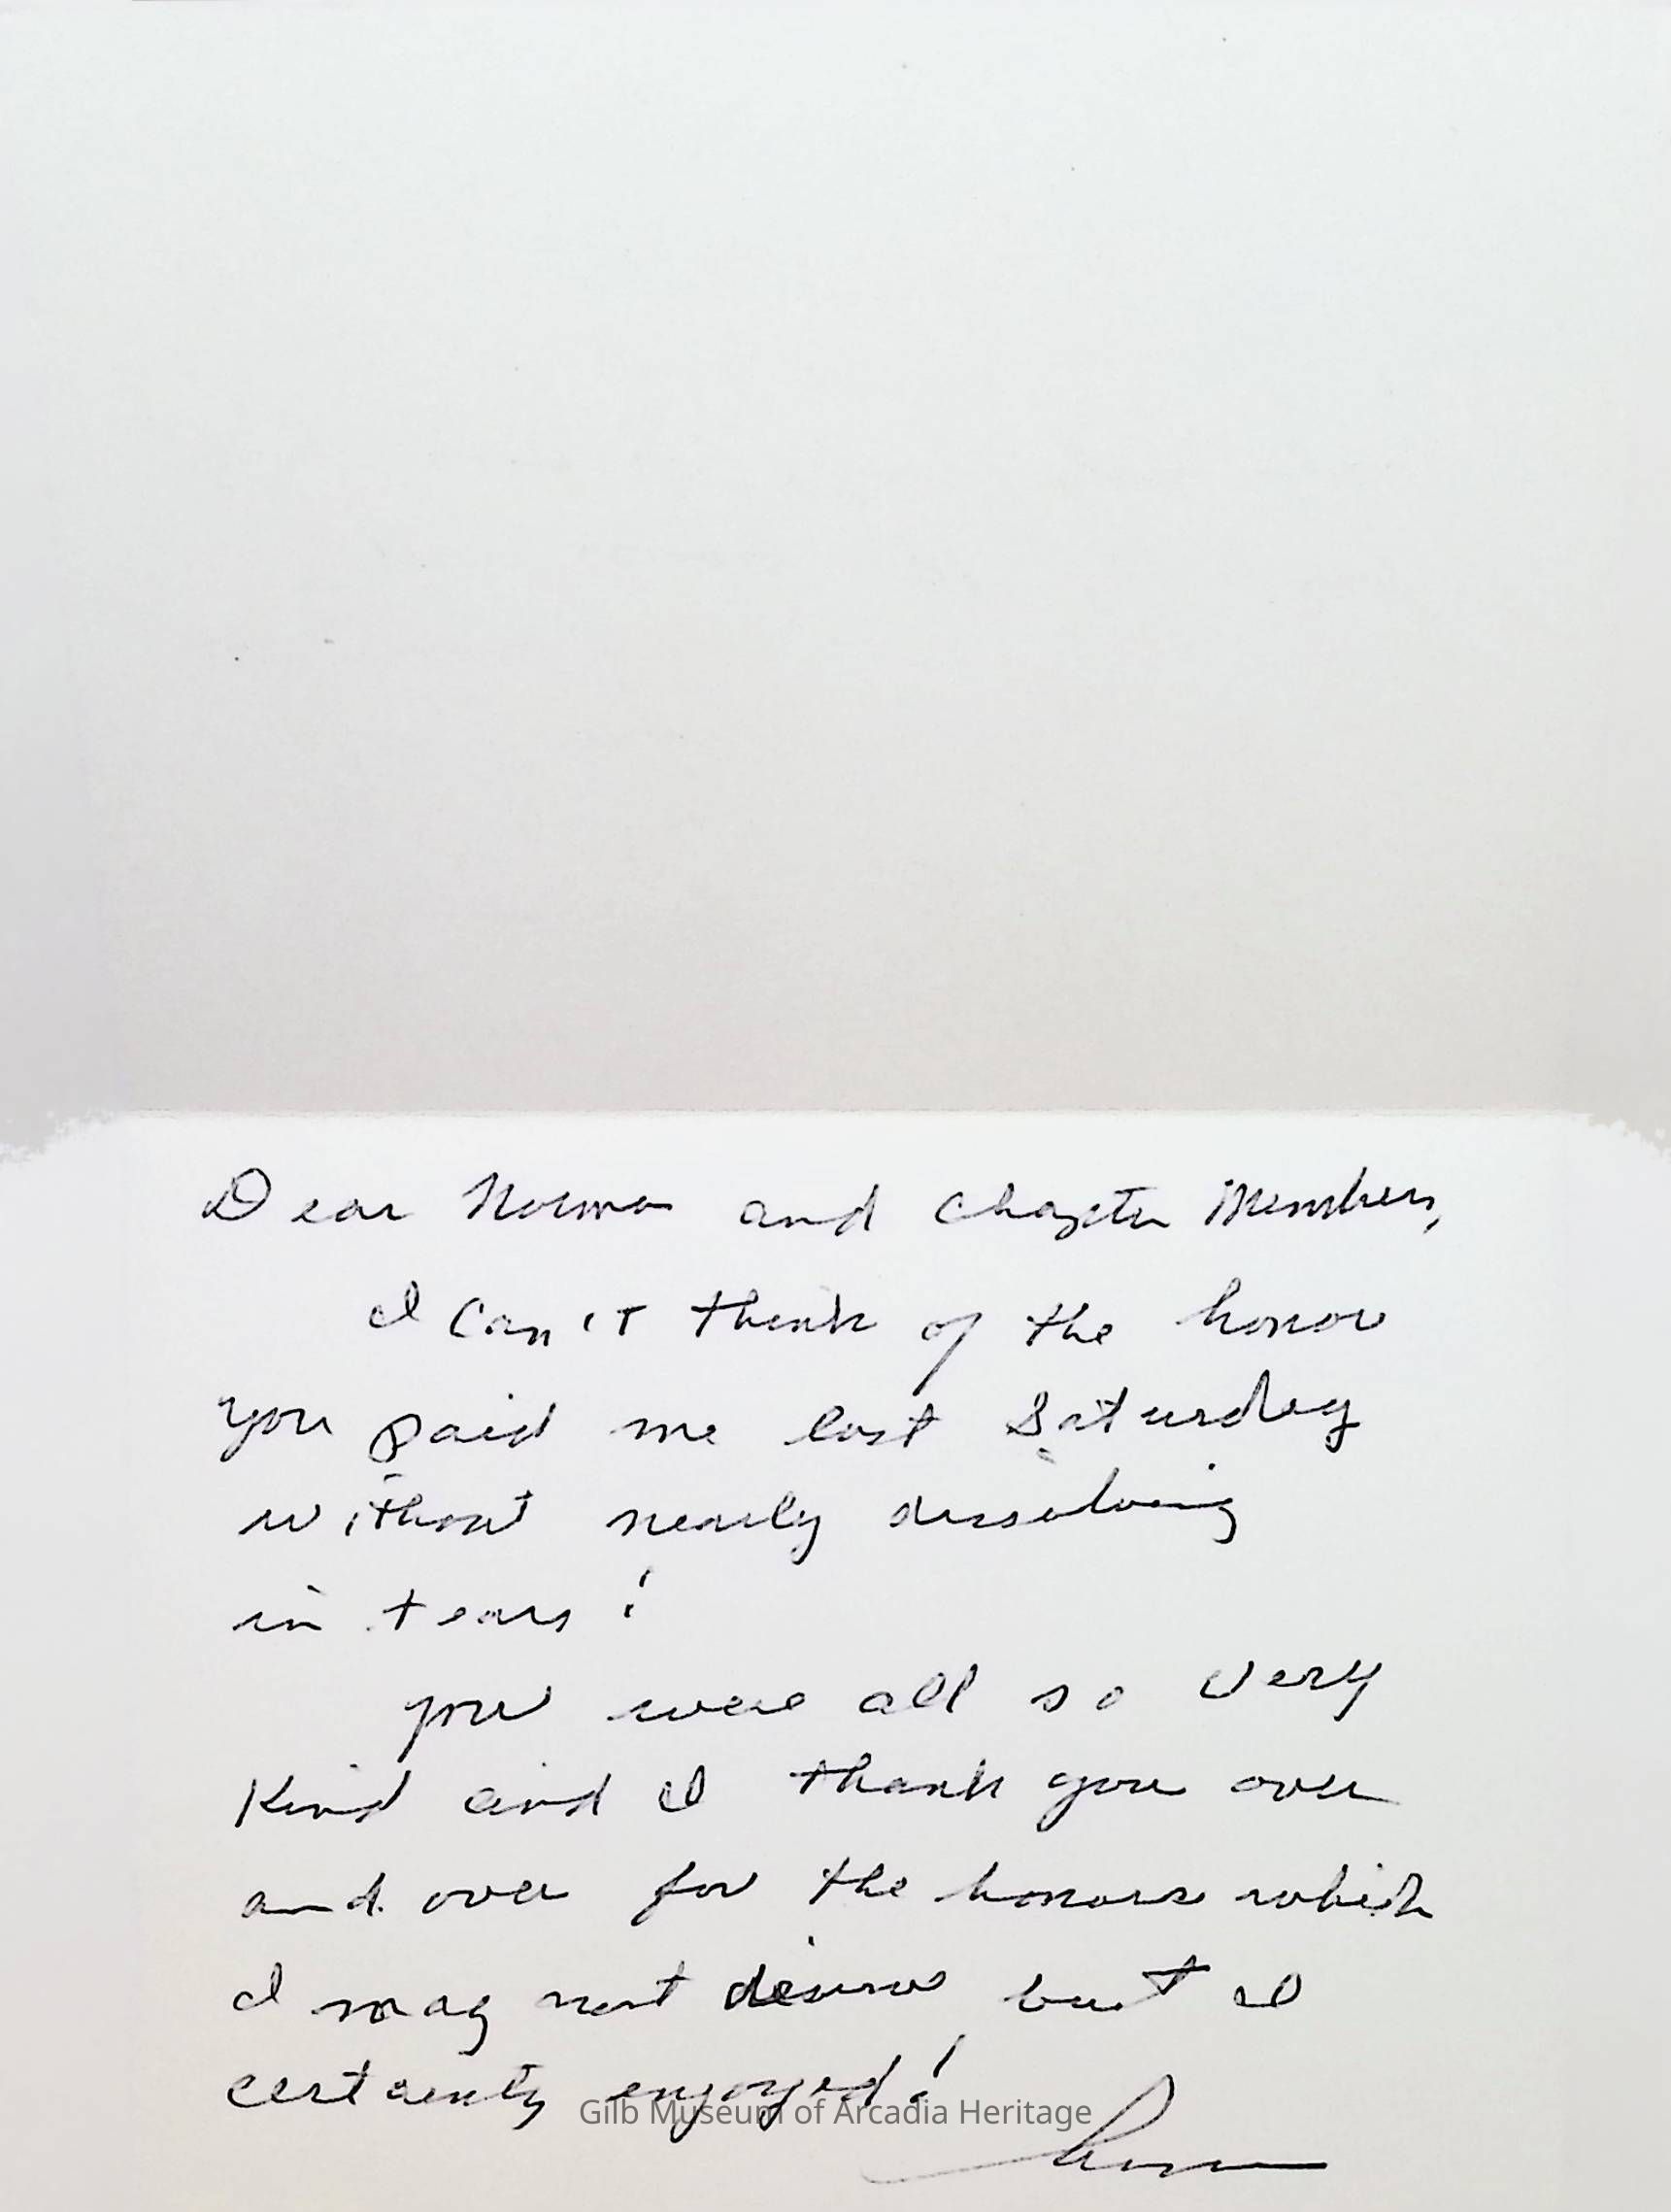 Dear Norma and Chapter Members,
I Can't think of the honor
you paid me last Saturday
without nearly dissolving
in tears!
you were all so very
Kind and I thank you over
and over for the honors which
I may not deserve but I
certainly enjoyed!
Gilb Museum of Arcadia Heritage